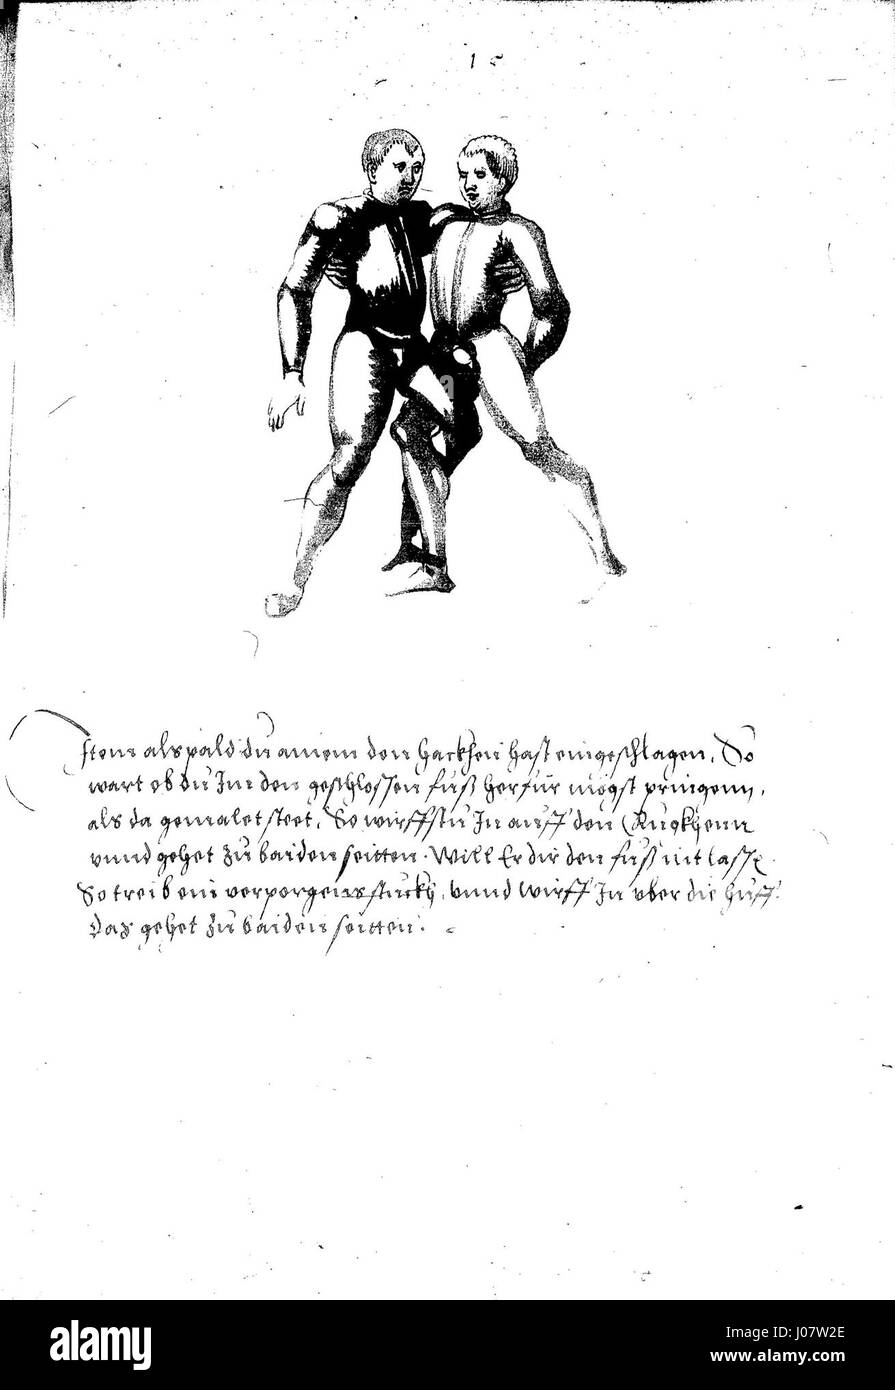 15
Item als pald du ainem den hackhen hast eingeschlagen, So
wart ob du Im den geschlossen fuß herfur mögst pringenn,
als da gemalet steet, So wirffstu In auff den Ruckhenn
vnnd gehet zu baiden seitten. Will Er dir den fuß nit lassen
So treib ein verporgens stuckh, vnnd wirff In vber die huff.
das gehet zu baiden seitten.
a
a
alamy
Image ID: J07W2E
www.alamy.com